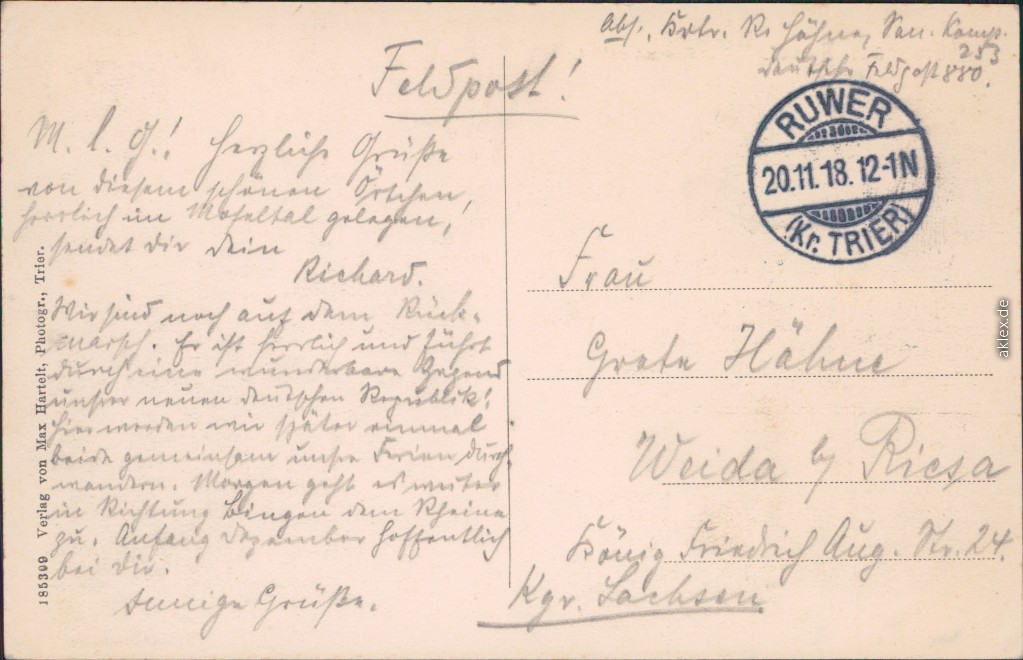 Abs. Krkr. R. Hähne, San. Komp. 253
Deutsche Feldpost 880.
Feldpost!
RUWER
20.11.18. 12-1N
(Kr. TRIER)
M. l. G.! Herzliche Grüße
von diesem schönen Örtchen,
herrlich im Moseltal gelegen,
sendet Dir Dein
Richard.
Wir sind noch auf dem Rück-
marsch. Er ist herrlich und führt
durch eine wunderbare Gegend
unsrer neuen deutschen Republik!
Hier werden wir später einmal
beide gemeinsam unsre Ferien durch-
wandern. Morgen geht es weiter
in Richtung Bingen dem Rheine
zu. Anfang Dezember hoffentlich
bei Dir.
Innige Grüße.
Frau
Grete Hähne
Weida b/ Riesa
König Friedrich Aug. Str. 24.
Kgr. Sachsen
185309 Verlag von Max Hartelt, Photogr., Trier.
aklex.de